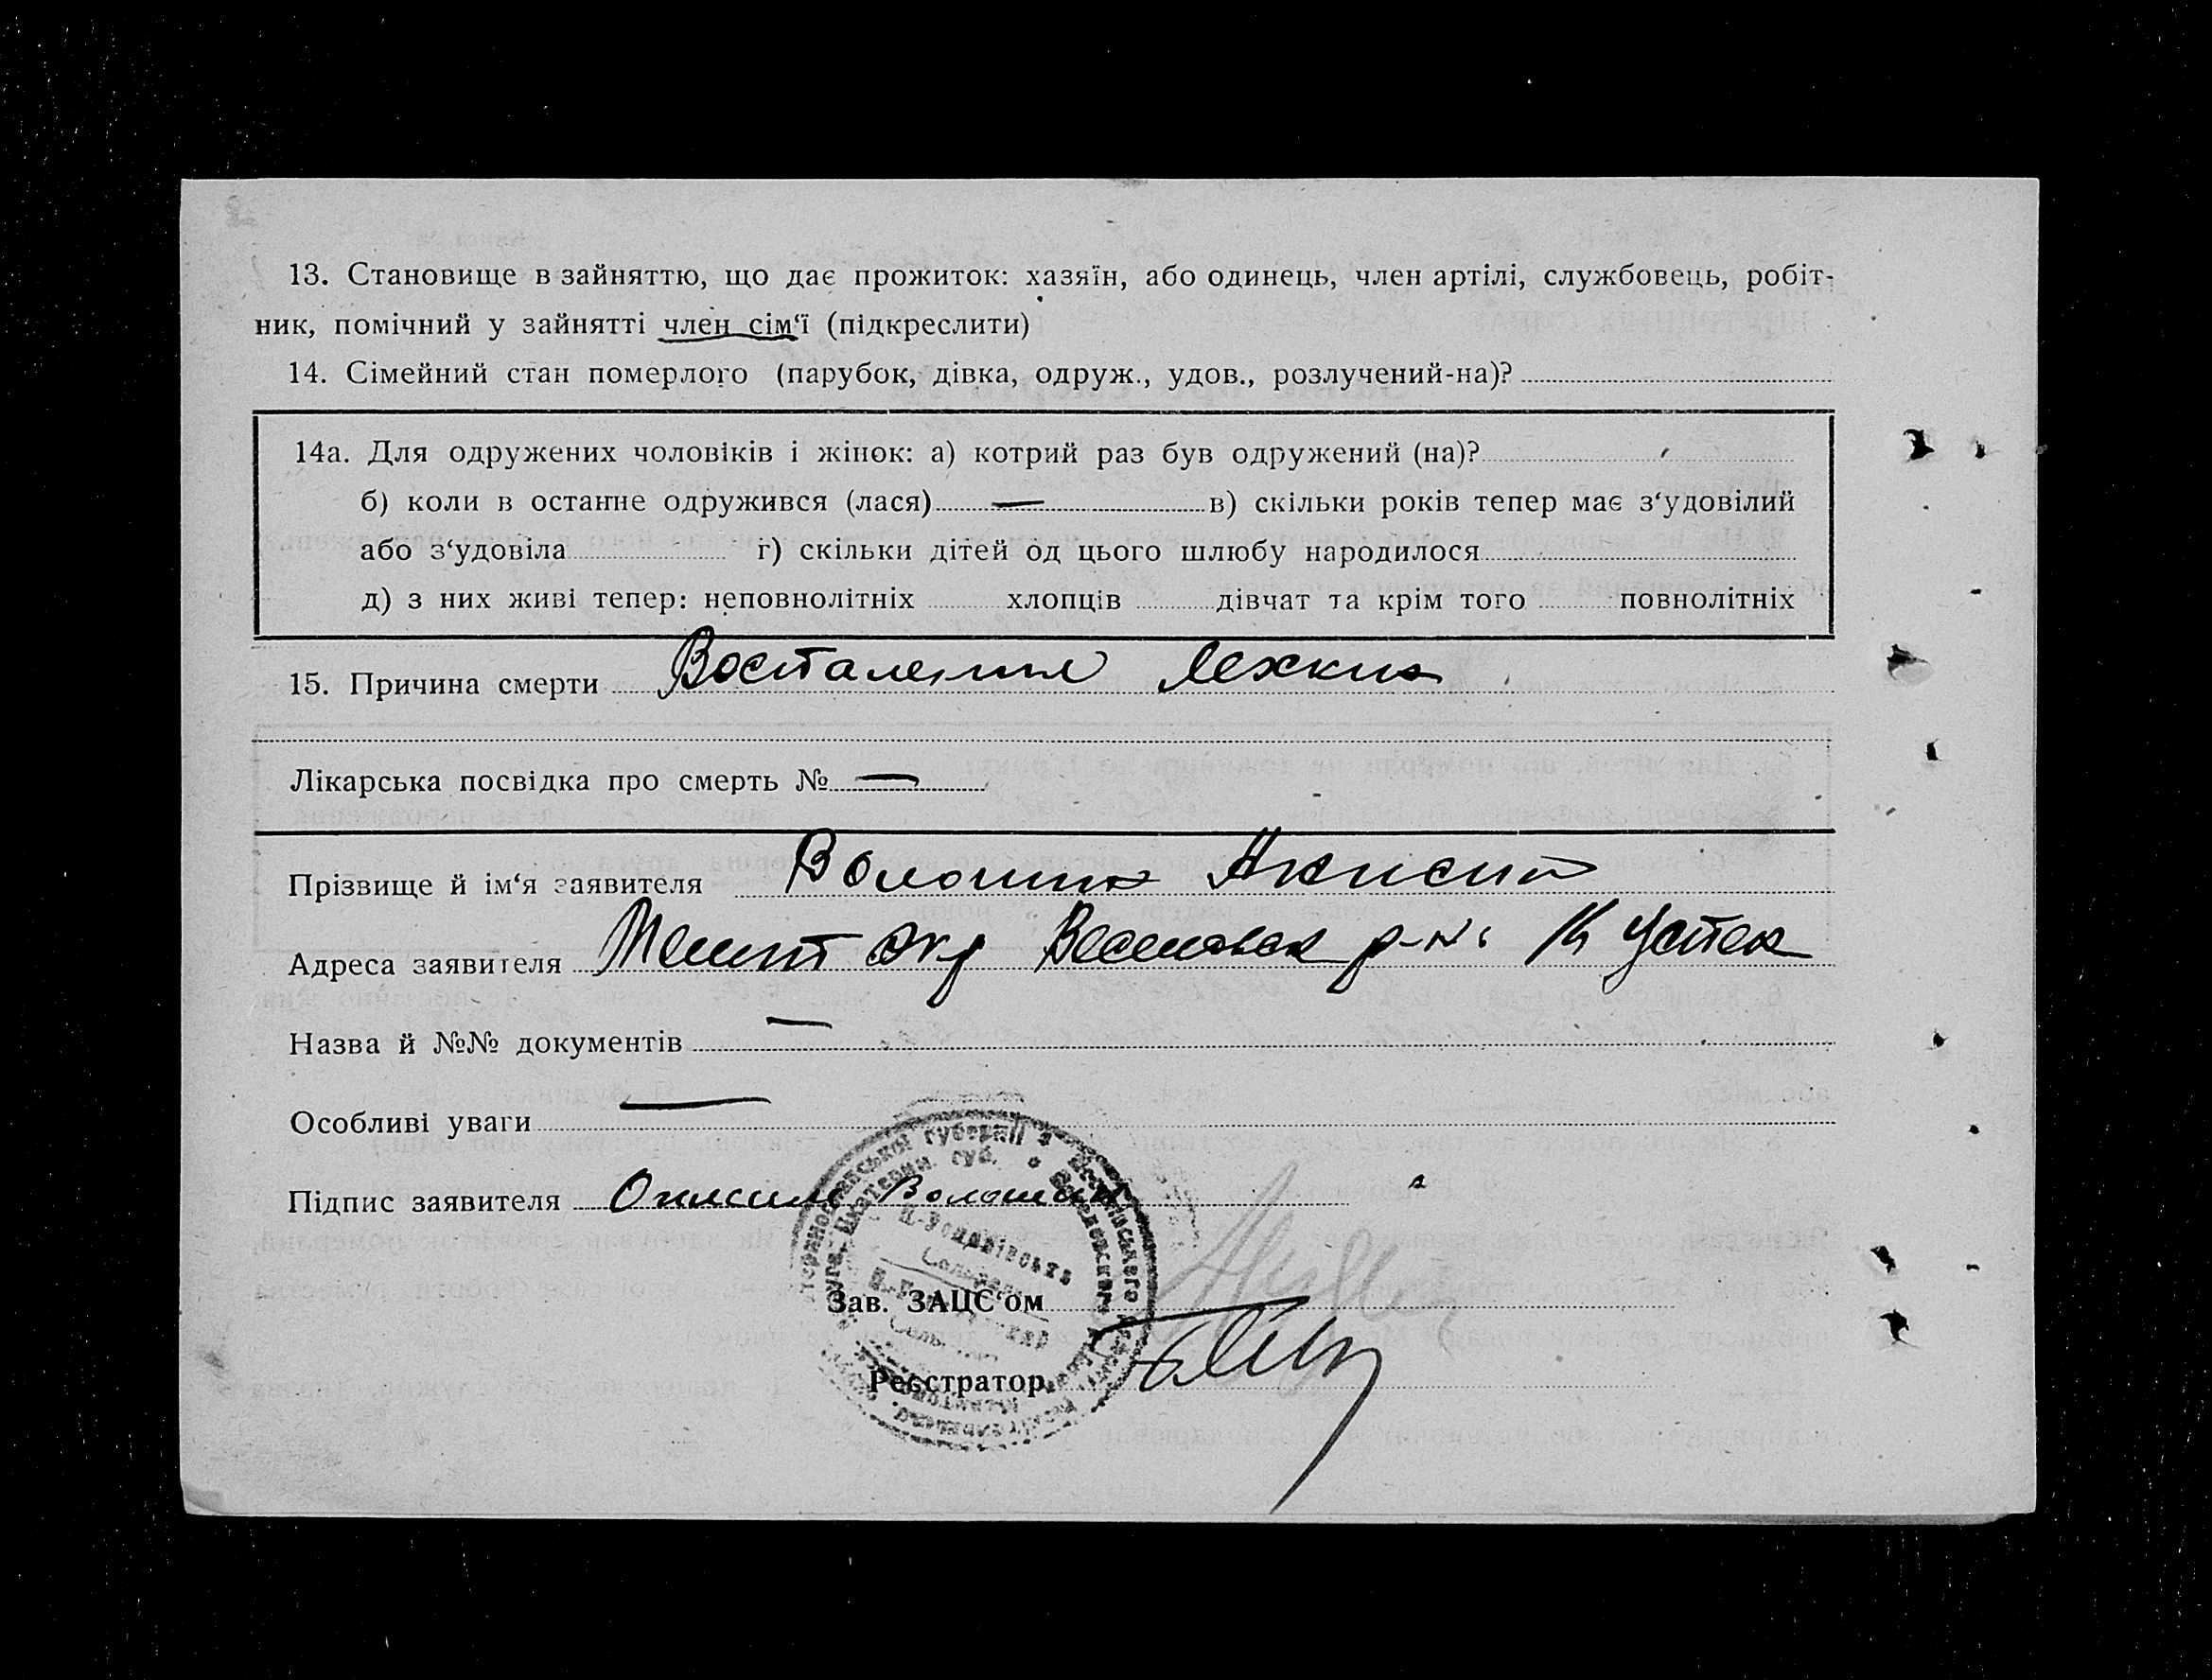 13. Становище в зайняттю, що дає прожиток: хазяїн, або одинець, член артілі, службовець, робіт-
ник, помічний у зайнятті член сім‘ї (підкреслити)
14. Сімейний стан померлого (парубок, дівка, одруж., удов., розлучений-на)?
14а. Для одружених чоловіків і жінок: а) котрий раз був одружений (на)?
б) коли в останнє одружився (лася) — в) скільки років тепер має з‘удовілий
або з‘удовіла г) скільки дітей од цього шлюбу народилося
д) з них живі тепер: неповнолітніх хлопців дівчат та крім того повнолітніх
15. Причина смерти Воспаление
Лікарська посвідка про смерть № —
Прізвище й ім‘я заявителя Волошин
Адреса заявителя Мелит окр р-н
Назва й №№ документів —
Особливі уваги —
Підпис заявителя Волошин
губернії
губ.
Зав. ЗАЦС‘ом
Реєстратор